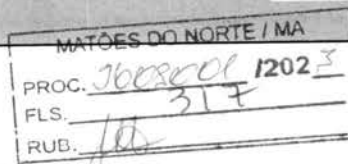 MATÕES DO NORTE / MA
PROC. /2023
FLS. 317
RUB.